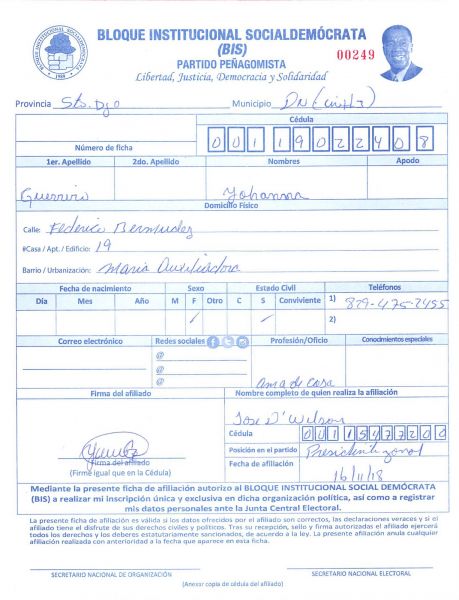 BLOQUE INSTITUCIONAL SOCIALDEMÓCRATA
(BIS)
PARTIDO PEÑAGOMISTA
Libertad, Justicia, Democracia y Solidaridad
00249
BLOQUE INSTITUCIONAL SOCIALDEMOCRATA
Provincia Sto. Dgo Municipio DN
Cédula
Número de ficha 00119022408
1er. Apellido 2do. Apellido Nombres Apodo
Guerrero Yohanna
Domicilio Físico
Calle: Federico Bermudez
#Casa / Apt. / Edificio: 19
Barrio / Urbanización: Maria Auxiliadora
Fecha de nacimiento Sexo Estado Civil Teléfonos
Día Mes Año M F Otro C S Conviviente 1) 829-475-2455
2)
Correo electrónico Redes sociales Profesión/Oficio Conocimientos especiales
@
@
@ ama de casa
Firma del afiliado Nombre completo de quien realiza la afiliación
Jose D' Wilson
Cédula 00115477200
Posición en el partido Presidente zonal
Firma del afiliado
(Firme igual que en la Cédula)
Fecha de afiliación 16/11/18
Mediante la presente ficha de afiliación autorizo al BLOQUE INSTITUCIONAL SOCIAL DEMÓCRATA
(BIS) a realizar mi inscripción única y exclusiva en dicha organización política, así como a registrar
mis datos personales ante la Junta Central Electoral.
La presente afiliación es válida si los datos ofrecidos por el afiliado son correctos, las declaraciones veraces y si el
afiliado tiene el disfrute de sus derechos civiles y políticos. Tras su recepción, sello y firma autorizadas el afiliado ejercerá
todos los derechos y los deberes estatutariamente sancionados, de acuerdo a la ley. La presente afiliación anula cualquier
afiliación realizada con anterioridad a la fecha que aparece en esta ficha.
SECRETARIO NACIONAL DE ORGANIZACIÓN SECRETARIO NACIONAL ELECTORAL
(Anexar copia de cédula del afiliado)